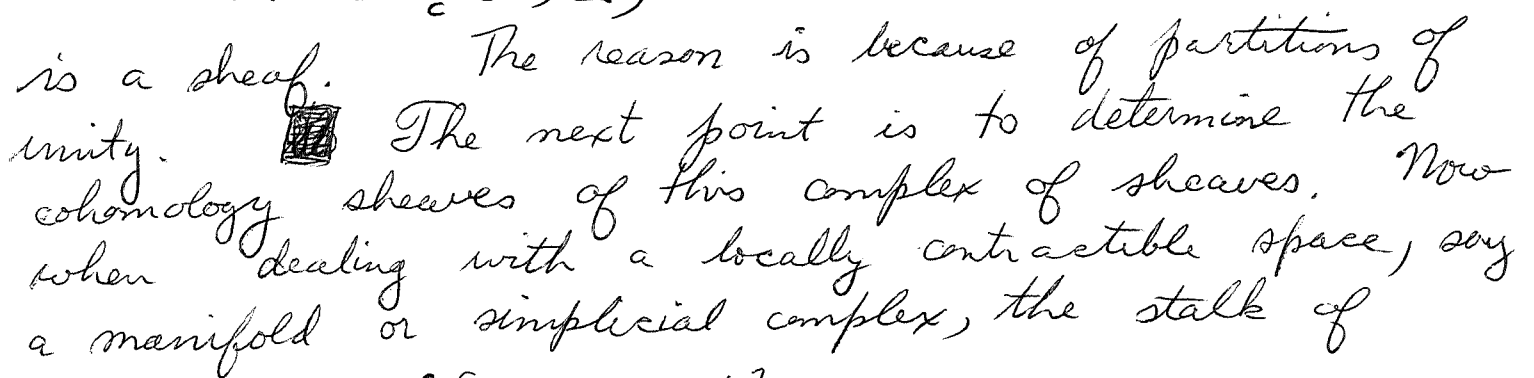 is a sheaf. The reason is because of partitions of
unity. The next point is to determine the
cohomology sheaves of this complex of sheaves. Now
when dealing with a locally contractible space, say
a manifold or simplicial complex, the stalk of